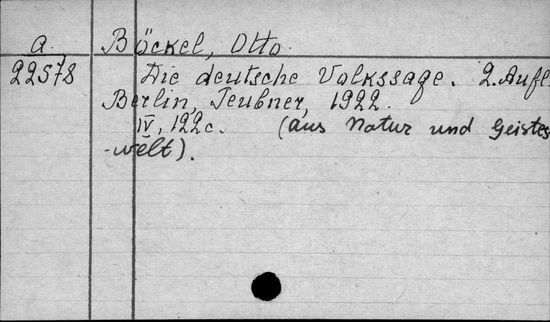 a. Böckel, Otto.
22578 Die deutsche Volkssage. 2. Aufl.
Berlin, Teubner, 1922.
IV, 122 c. (aus Natur und Geistes
-welt).